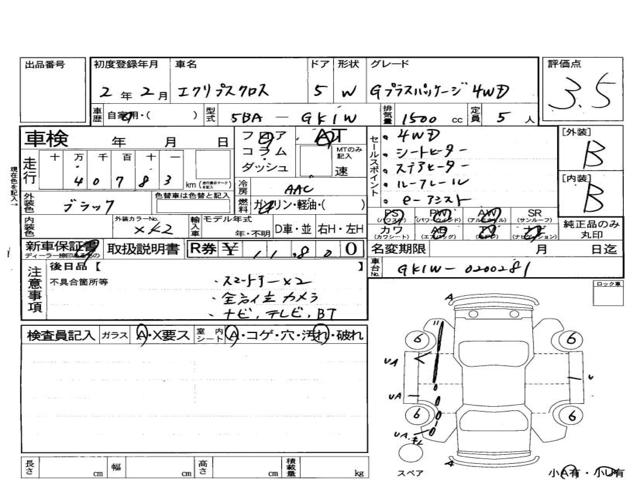 出品番号 初度登録年月 車名 ドア 形状 グレード 評価点
2年2月 エクリプスクロス 5 W Gプラスパッケージ 4WD 3.5
車歴 自家用・( ) 型式 5BA-GK1W 排気量 1500cc 定員 5人
車検 年 月 日 フロア AT セールスポイント ・4WD [外装] B
現在色を記入→
走行 十万千百十一 40783 km コラム MTのみ記入 ・シートヒーター
ダッシュ 速 ・ステアヒーター
冷房 AAC ・ルーフレール [内装] B
外装色 ブラック 色替車は色替と記入 燃料 ガソリン・軽油・( ) ・e-アシスト
内装色 外装カラーNo. X42 輸入車 モデル年式 年・不明 D車・並 右H・左H
PS PW AW SR
(パワステ) (パワーウインド) (アルミホイール) (サンルーフ)
カワ (カワシート) (エアバッグ) (ナビゲーション) 純正品のみ丸印
新車保証書 取扱説明書 R券 ¥11,800 名変期限 月 日迄
車台No. GK1W-0200281
注意事項 後日品[ ] ロック車
不具合箇所等 ・スマートキー×2
・全方位カメラ
・ナビ,テレビ,BT
検査員記入 ガラス A・X要ス 室内シート A・コゲ・穴・汚れ・破れ
A
6 6
UA
UA
6 6
UA
A
スペア 小A有・小U有
長さ cm 幅 cm 高さ cm 積載量 kg